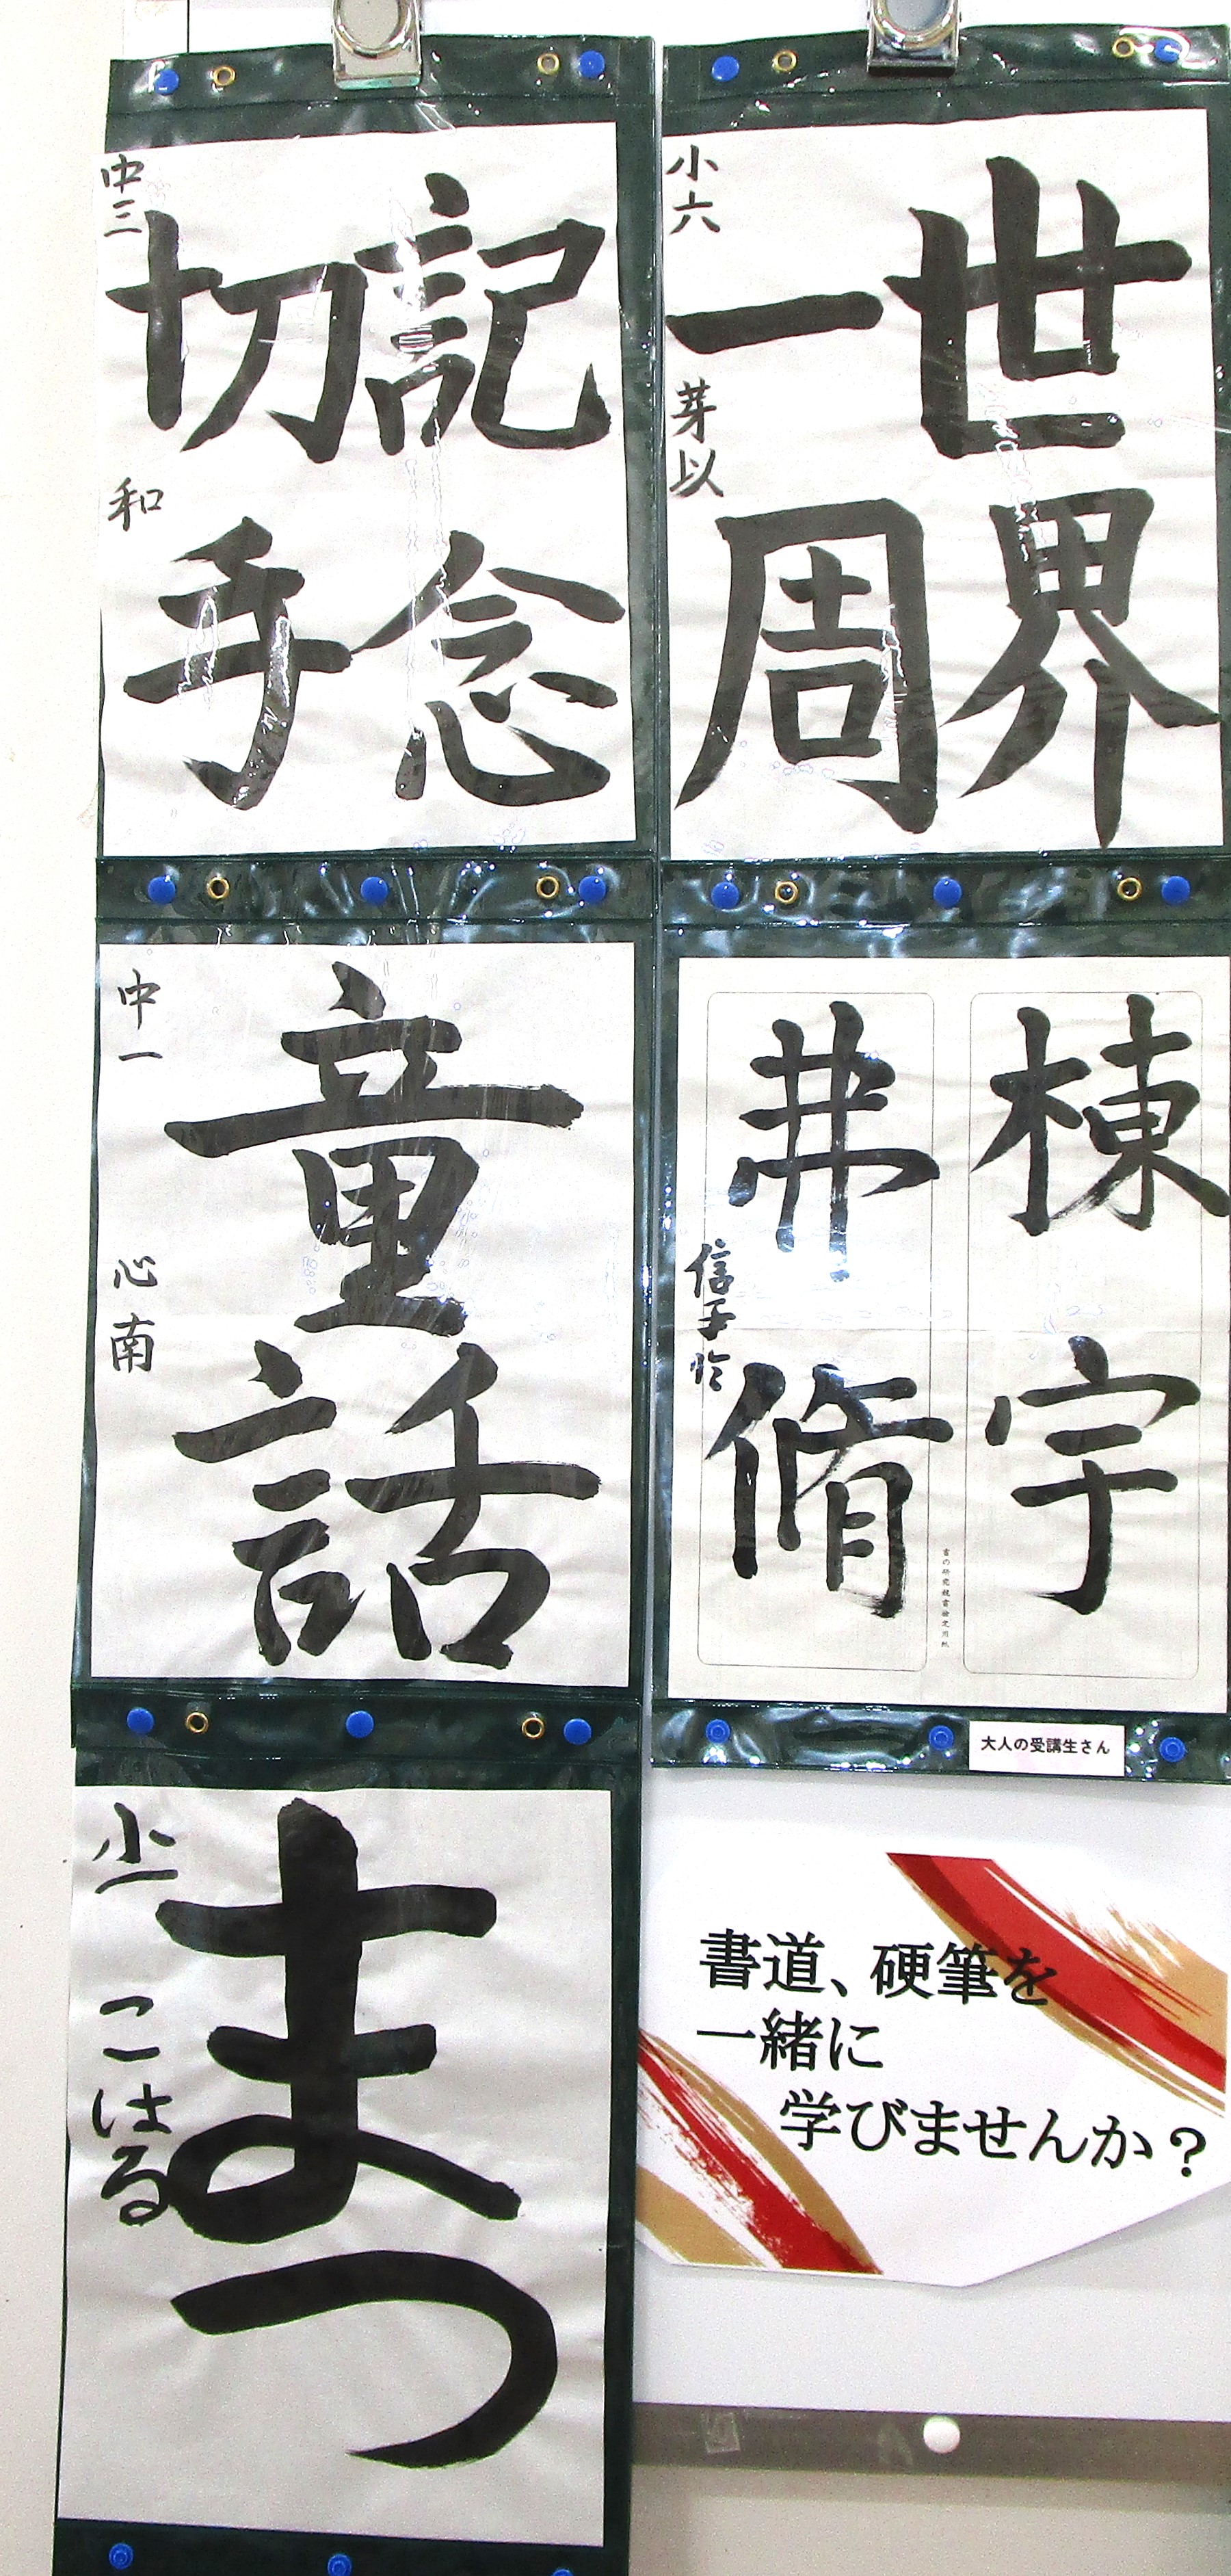 世界
一周
小六 芽以
記念
切手
中三 和
棟宇
弗脩
信子臨
大人の受講生さん
童話
中一 心南
まつ
小一 こはる
書道、硬筆を
一緒に
学びませんか？